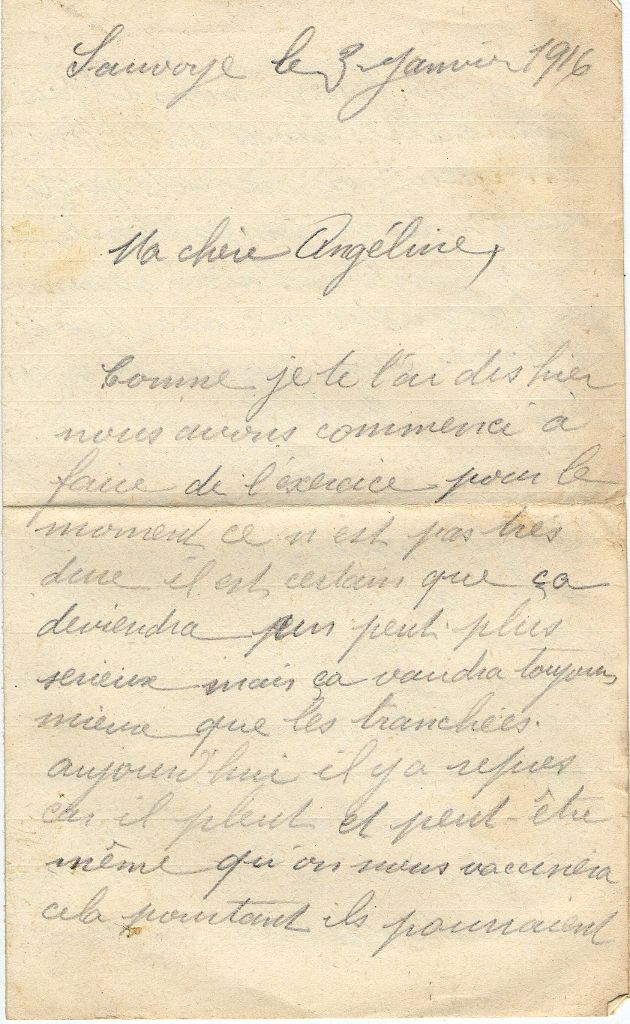 Sauvoye le 3 Janvier 1916
Ma chère Angéline,
Comme je te l'ai dis hier
nous avons commencé à
faire de l'exercice pour le
moment ce n'est pas très
dure il est certain que ça
deviendra un peut plus
serieux mais ça vaudra toujours
mieux que les tranchées.
aujourd'hui il y a repos
car il pleut et peut-être
même qu'on nous vaccinera
cela pourtant ils pourraient